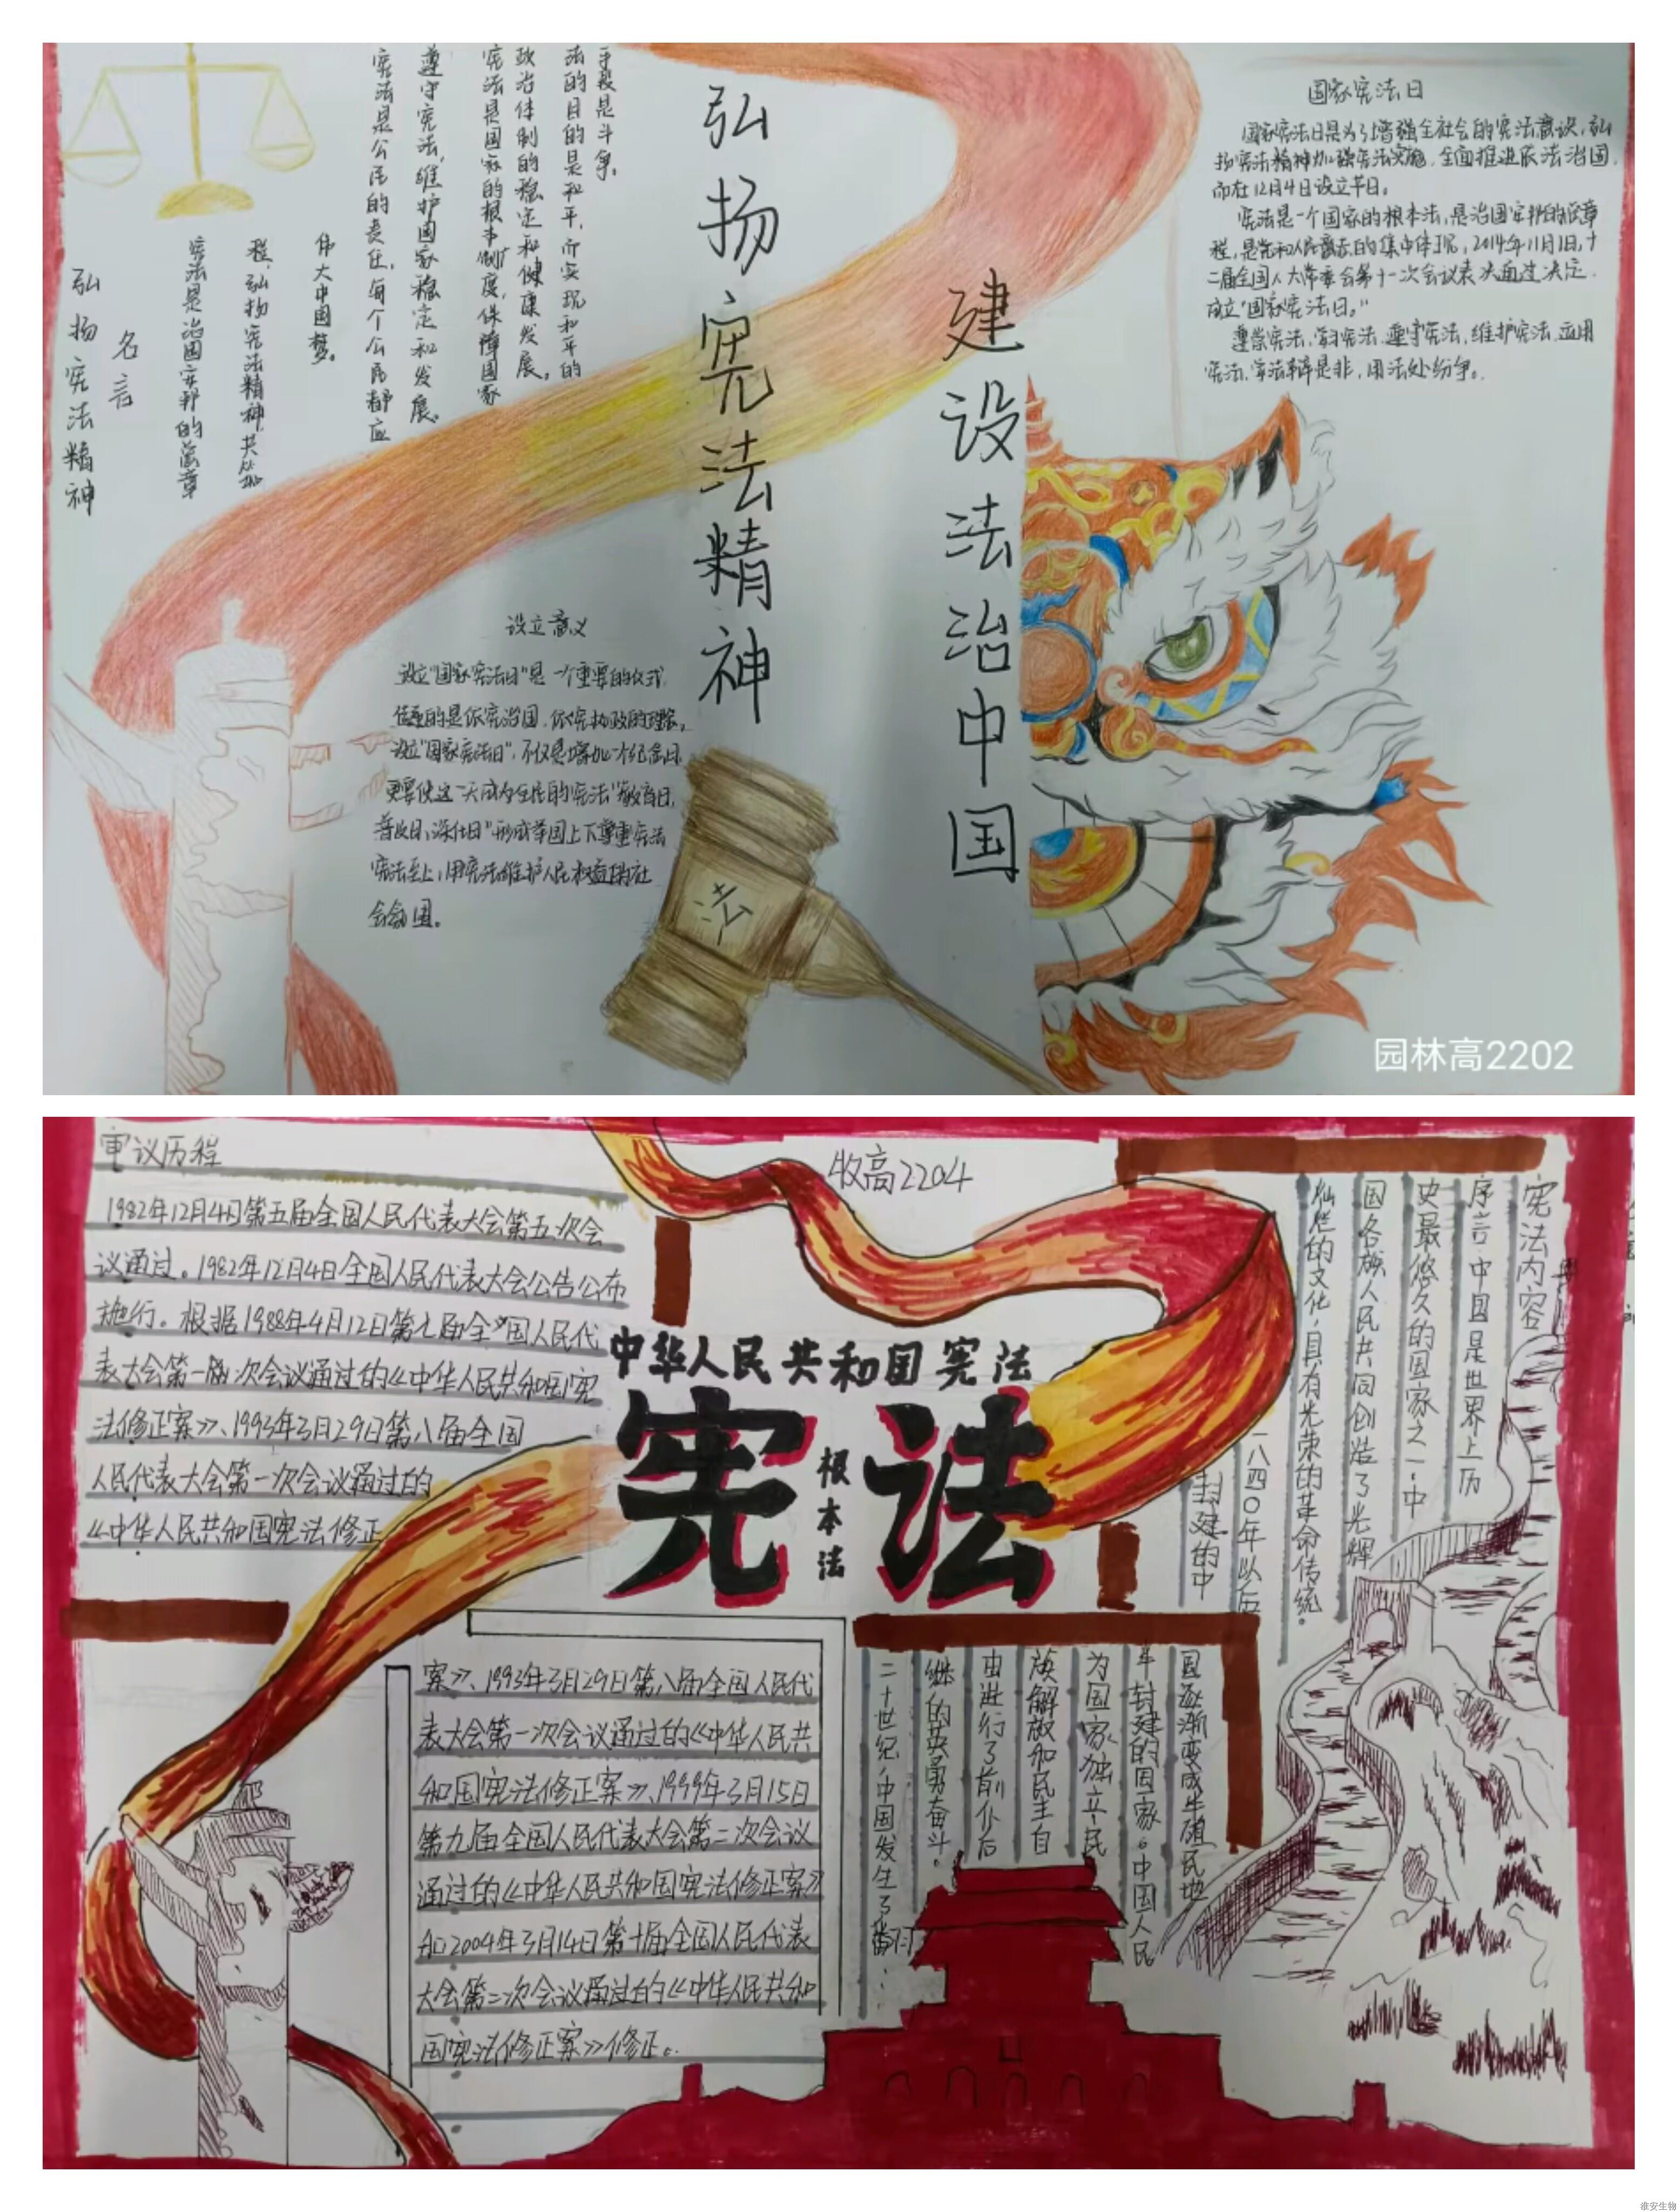 弘扬宪法精神
建设法治中国
国家宪法日
国家宪法日是为了增强全社会的宪法意识,弘
扬宪法精神加强宪法实施,全面推进依法治国,
而在12月4日设立节日。
宪法是一个国家的根本法,是治国安邦的总章
程,是党和人民意志的集中体现,2014年11月1日,十
二届全国人大常委会第十一次会议表决通过决定,
成立"国家宪法日。"
遵崇宪法,学习宪法,遵守宪法,维护宪法,运用
宪法,宪法辩是非,用法处纷争。
手段是斗争。
法的目的是和平,而实现和平的
政治体制的稳定和健康发展。
宪法是国家的根本制度,保障国家
遵守宪法,维护国家稳定和发展。
宪法是公民的责任,每个公民都应
伟大中国梦。
程,弘扬宪法精神,共筑
宪法是治国安邦的总章
名言
弘扬宪法精神
设立意义
设立"国家宪法日"是一个重要的仪式,
传递的是依宪治国,依宪执政的理念。
设立"国家宪法日",不仅是增加一个纪念日,
更要使这一天成为全民的宪法"教育日,
普及日,深化日"形成举国上下尊重宪法
宪法至上,用宪法维护人民权益的社
会氛围。
法
园林高2202
审议历程
牧高2204
1982年12月4日第五届全国人民代表大会第五次会
议通过。1982年12月4日全国人民代表大会公告公布
施行。根据1988年4月12日第七届全国人民代
表大会第一次会议通过的《中华人民共和国宪
法修正案》、1993年3月29日第八届全国
人民代表大会第一次会议通过的
《中华人民共和国宪法修正
案》、1993年3月29日第八届全国人民代
表大会第一次会议通过的《中华人民共
和国宪法修正案》、1999年3月15日
第九届全国人民代表大会第二次会议
通过的《中华人民共和国宪法修正案》
和2004年3月14日第十届全国人民代表
大会第二次会议通过的《中华人民共和
国宪法修正案》修正。
中华人民共和国宪法
宪法
根本法
宪法内容
序言:中国是世界上历
史最悠久的国家之一,中
国各族人民共同创造了光辉
灿烂的文化,具有光荣的革命传统。
一八四〇年以后
封建的中
国逐渐变成半殖民地
半封建的国家。中国人民
为国家独立、民
族解放和民主自
由进行了前仆后
继的英勇奋斗。
二十世纪,中国发生了翻
淮安生物